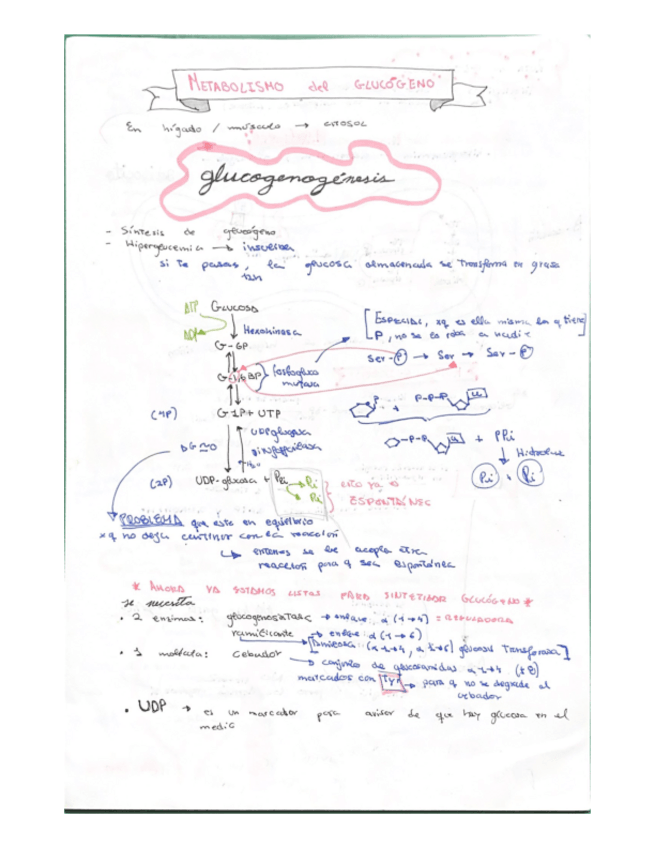 METABOLISMO del GLUCÓGENO
En hígado / músculo → CITOSOL
glucogenogénesis
- Síntesis de glucógeno
- Hiperglucemia → insulina
si te pasas, la glucosa almacenada se transforma en grasa
ATP GLUCOSA
ADP Hexoquinasa
G-6P
[ESPECIAL, xq es ella misma la q tiene
P, no se es roba a nadie]
Ser-P → Ser → Ser-P
fosfogluco
mutasa
(4P) G1P + UTP
UDPglucosa
pirofosforilasa
ΔG≈0
H₂O
P P-P-P
P-P + PPi
Hidrolasa
Pi + Pi
(2P) UDP-glucosa + PPi → Pi
Pi
esto ya es
ESPONTÁNEO
PROBLEMA que este en equilibrio
xq no deja continuar con la reacción
↳ entonces se le acopla otra
reacción para q sea espontánea
* AHORA YA ESTAMOS LISTAS PARA SINTETIZAR GLUCÓGENO *
se necesita
· 2 enzimas: glucogenosintasa → enlace α (1→4) = REGULADORA
ramificante → enlace α (1→6)
[ (α 1→4, α 1→6) glucosil transferasa]
· 1 molécula: cebador → conjunto de glucosamidas α 1→4 (±8)
marcados con Tyr → para q no se degrade el
cebador
· UDP → es un marcador para avisar de que hay glucosa en el
medio